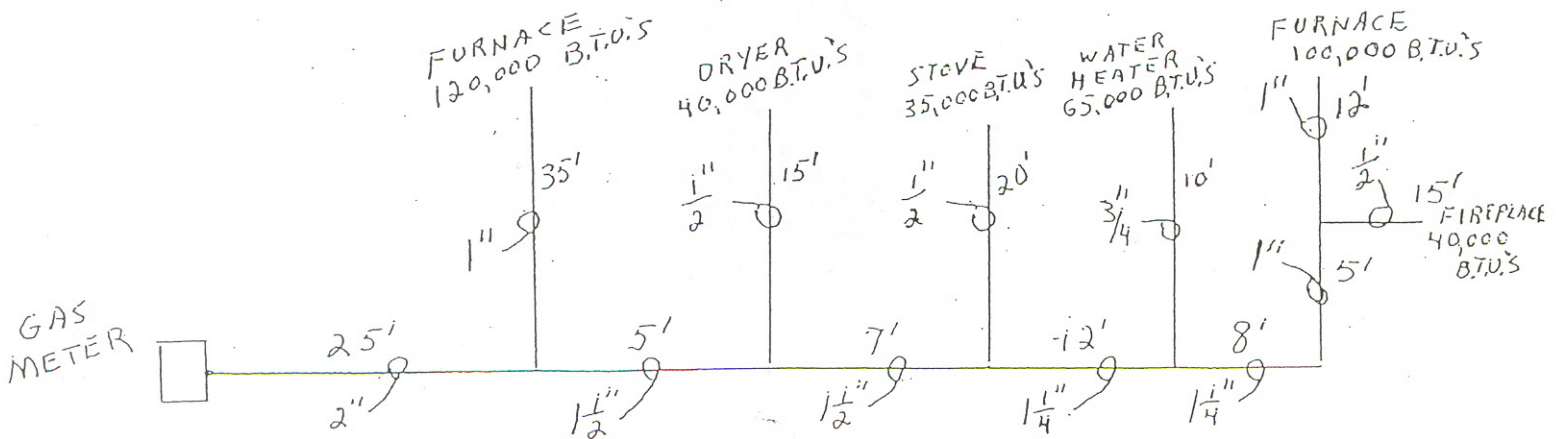 FURNACE
120,000 B.T.U.'S
DRYER
40,000 B.T.U.'S
STOVE
35,000 B.T.U'S
WATER
HEATER
65,000 B.T.U.'S
FURNACE
100,000 B.T.U.'S
1"
12'
35'
1"
1/2"
15'
1/2"
20'
3/4"
10'
1/2"
15'
FIREPLACE
40,000
B.T.U.'S
1"
5'
GAS
METER
25'
2"
5'
1 1/2"
7'
1 1/2"
12'
1 1/4"
8'
1 1/4"